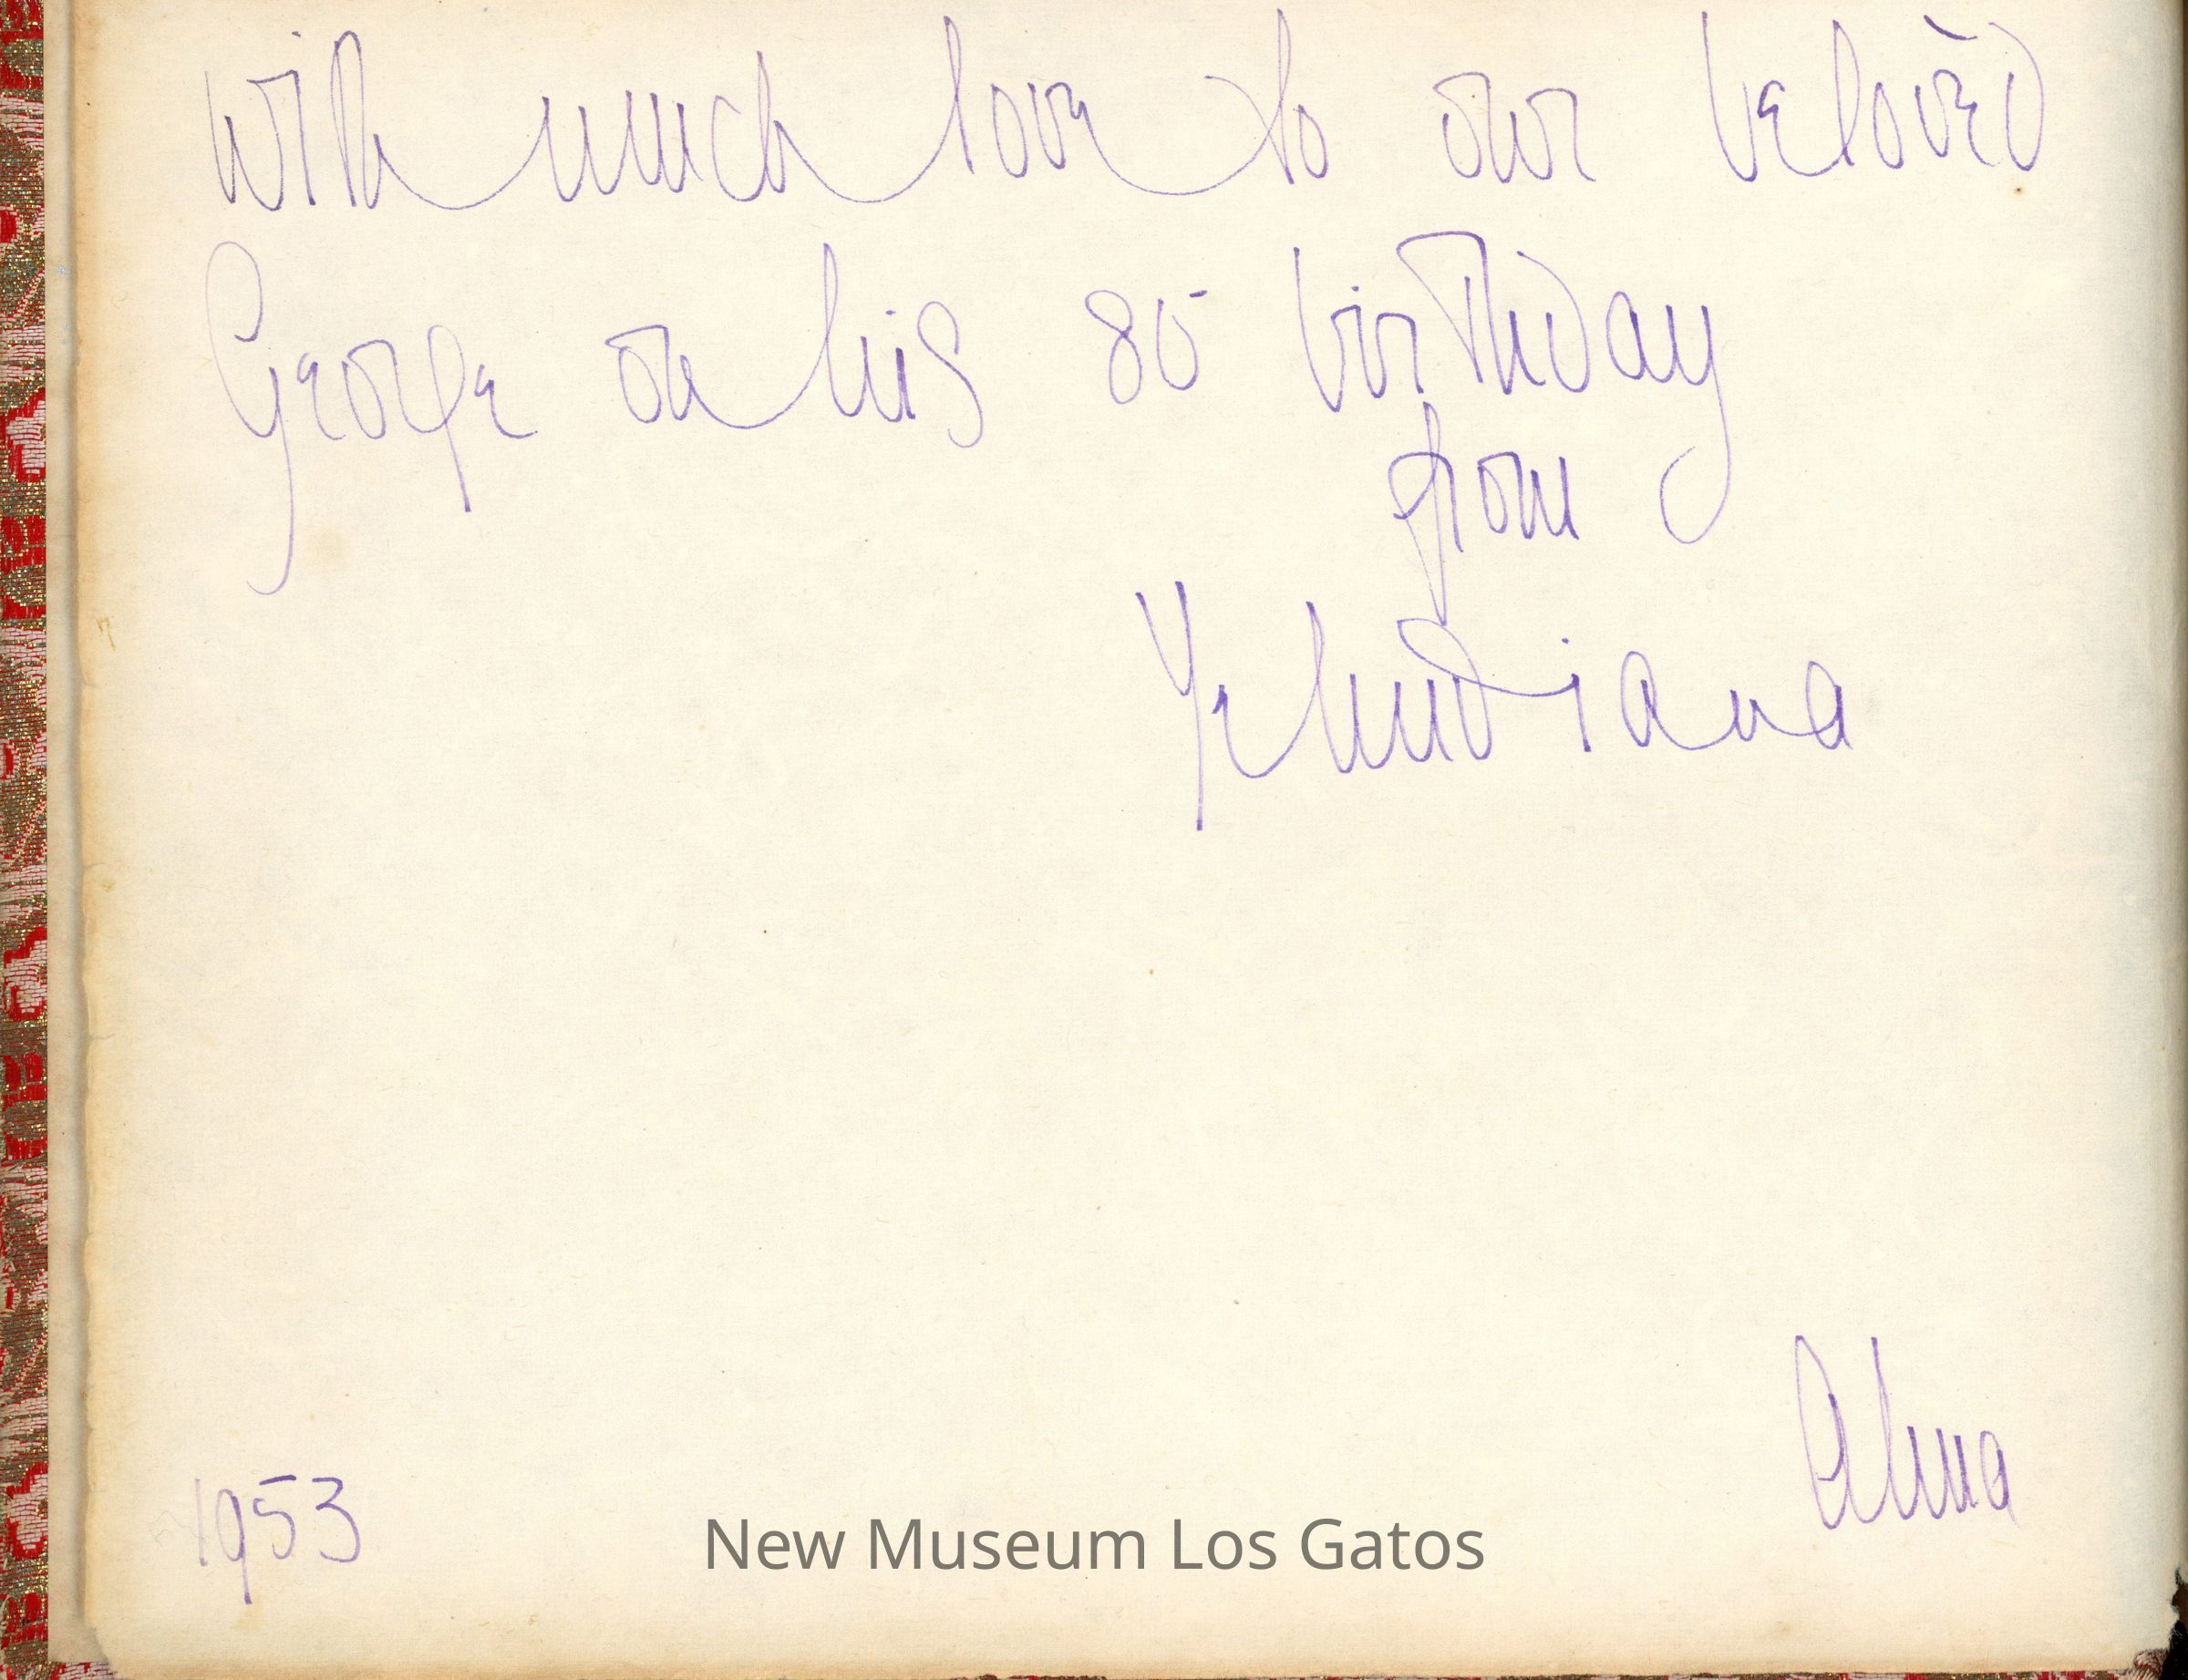 with much love to our beloved
George on his 80 birthday
from
Yehudiana
1953
Alma
New Museum Los Gatos